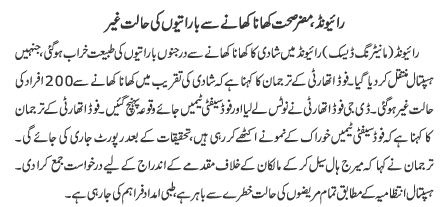 رائیونڈ، مضر صحت کھانا کھانے سے باراتیوں کی حالت غیر
رائیونڈ (مانیٹرنگ ڈیسک) رائیونڈ میں شادی کا کھانا کھانے سے درجنوں باراتیوں کی طبیعت خراب ہوگئی، جنہیں
ہسپتال منتقل کر دیا گیا۔ فوڈ اتھارٹی کے ترجمان کا کہنا ہے کہ شادی کی تقریب میں کھانا کھانے سے 200 افراد کی
حالت غیر ہوگئی۔ ڈی جی فوڈ اتھارٹی نے نوٹس لے لیا اور فوڈ سیفٹی ٹیمیں جائے وقوعہ پہنچ گئیں۔ فوڈ اتھارٹی کے ترجمان
کا کہنا ہے کہ فوڈ سیفٹی ٹیمیں خوراک کے نمونے اکٹھے کر رہی ہیں، تحقیقات کے بعد رپورٹ جاری کی جائے گی۔
ترجمان نے کہا کہ میرج ہال سیل کر کے مالکان کے خلاف مقدمے کے اندراج کے لیے درخواست جمع کرا دی۔
ہسپتال انتظامیہ کے مطابق تمام مریضوں کی حالت خطرے سے باہر ہے، طبی امداد فراہم کی جا رہی ہے۔